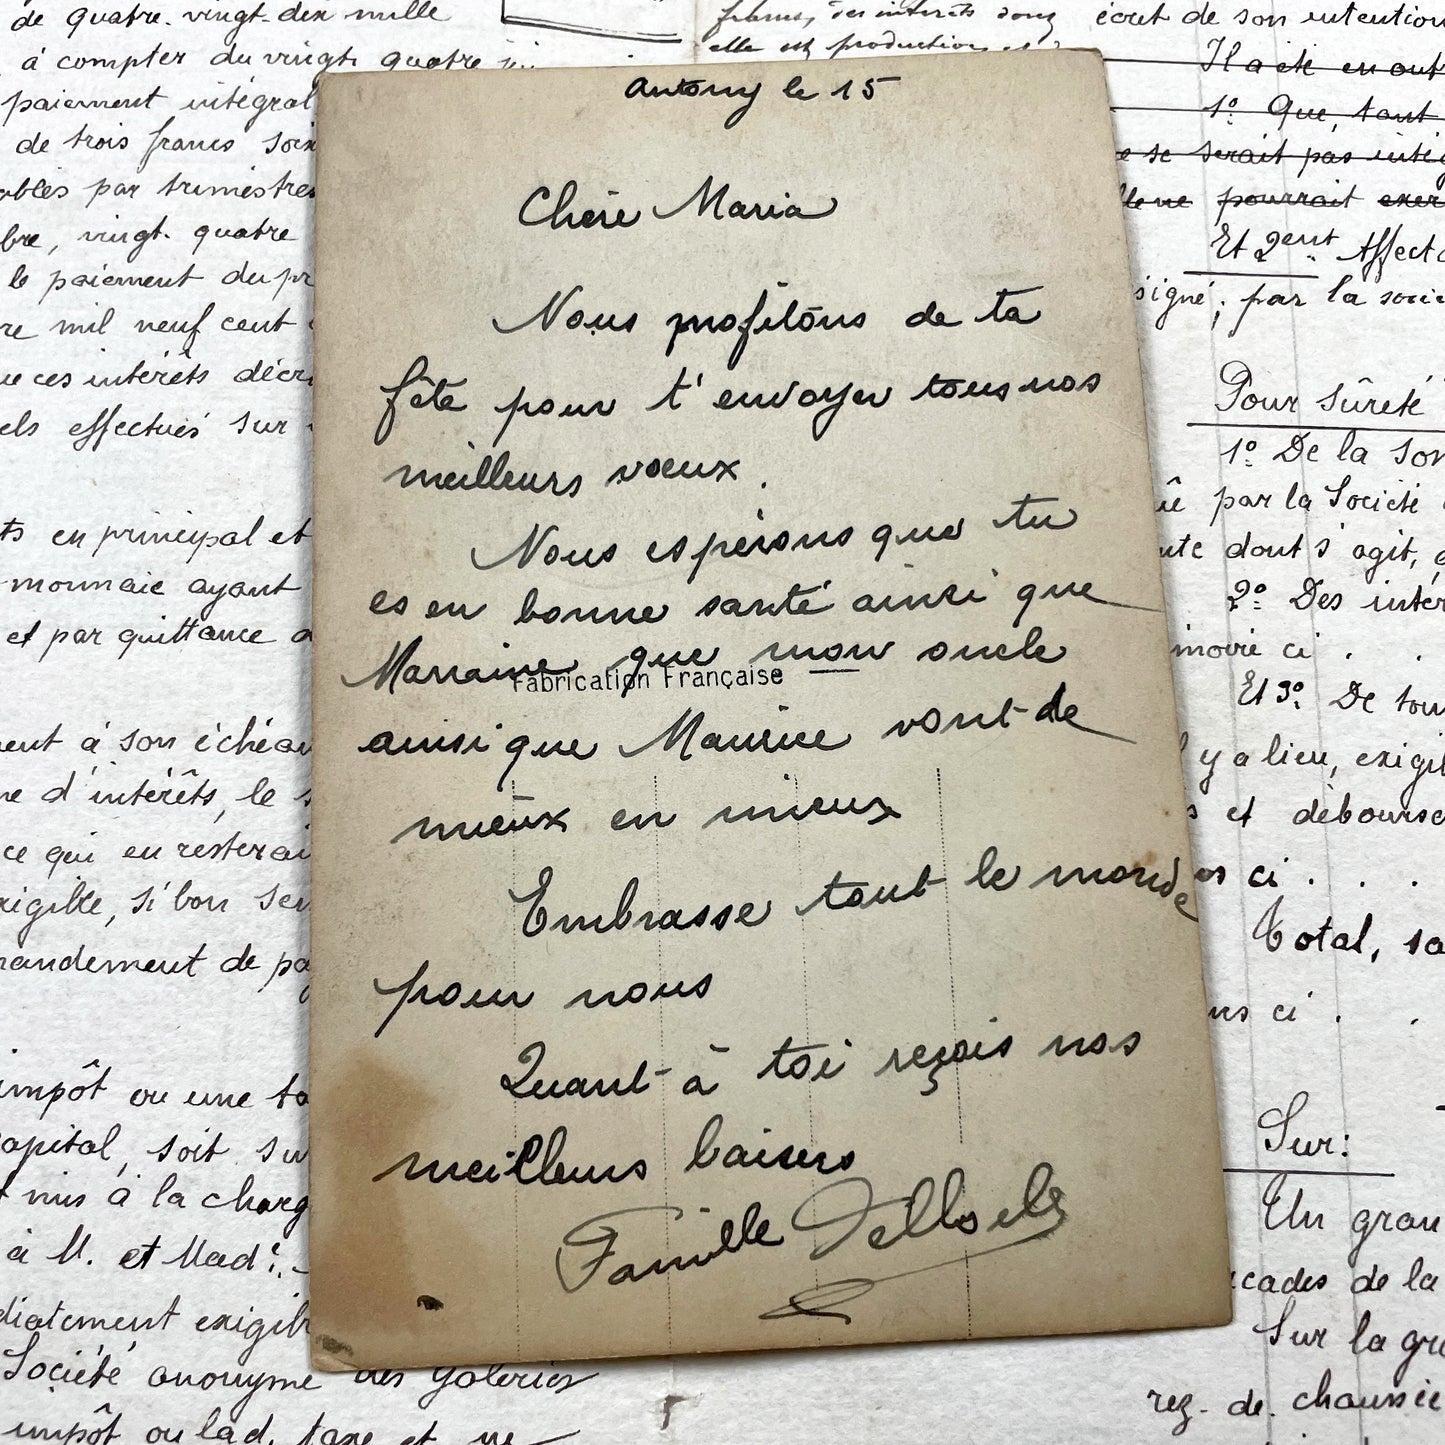 de quatre. vingt-dix mille
à compter du vingt quatre
paiement intégral
de trois francs soix
ables par trimestres
bre, vingt. quatre
le paiement du pr
re mil neuf cent
ue ces intérêts décr
els effectués sur
ts en principal et
monnaie ayant
et par quittance
ent à son échéan
ne d'intérêts, le s
ce qui en resterai
xigible, si bon sem
mandement de pa
impôt ou une ta
capital, soit su
mis à la charg
à M. et Mad.
diatement exigib
Société anonyme des Galeries
impôt ou lad. taxe et
francs, des intérêts
elle est production
Antony le 15
Chère Maria
Nous profitons de ta
fête pour t'envoyer tous nos
meilleurs voeux.
Nous espérons que tu
es en bonne santé ainsi que
Marraine que mon oncle
Fabrication Française
ainsi que Maurice vont de
mieux en mieux
Embrasse tout le monde
pour nous
Quant à toi reçois nos
meilleurs baisers
Famille
écrit de son intention
Il a été en out
1° Que, tant
se serait pas intég
pourrait exer
Et 2ent Affect
signé, par la soci
Pour Sûreté
1° De la som
par la Société
dont s'agit,
2° Des intér
ci . .
Et 3° De tou
y a lieu, exigi
et débourse
ci . . .
Total, sa
ci . .
Sur:
Un gran
cades de la
Sur la gr
rez. de. chaussée